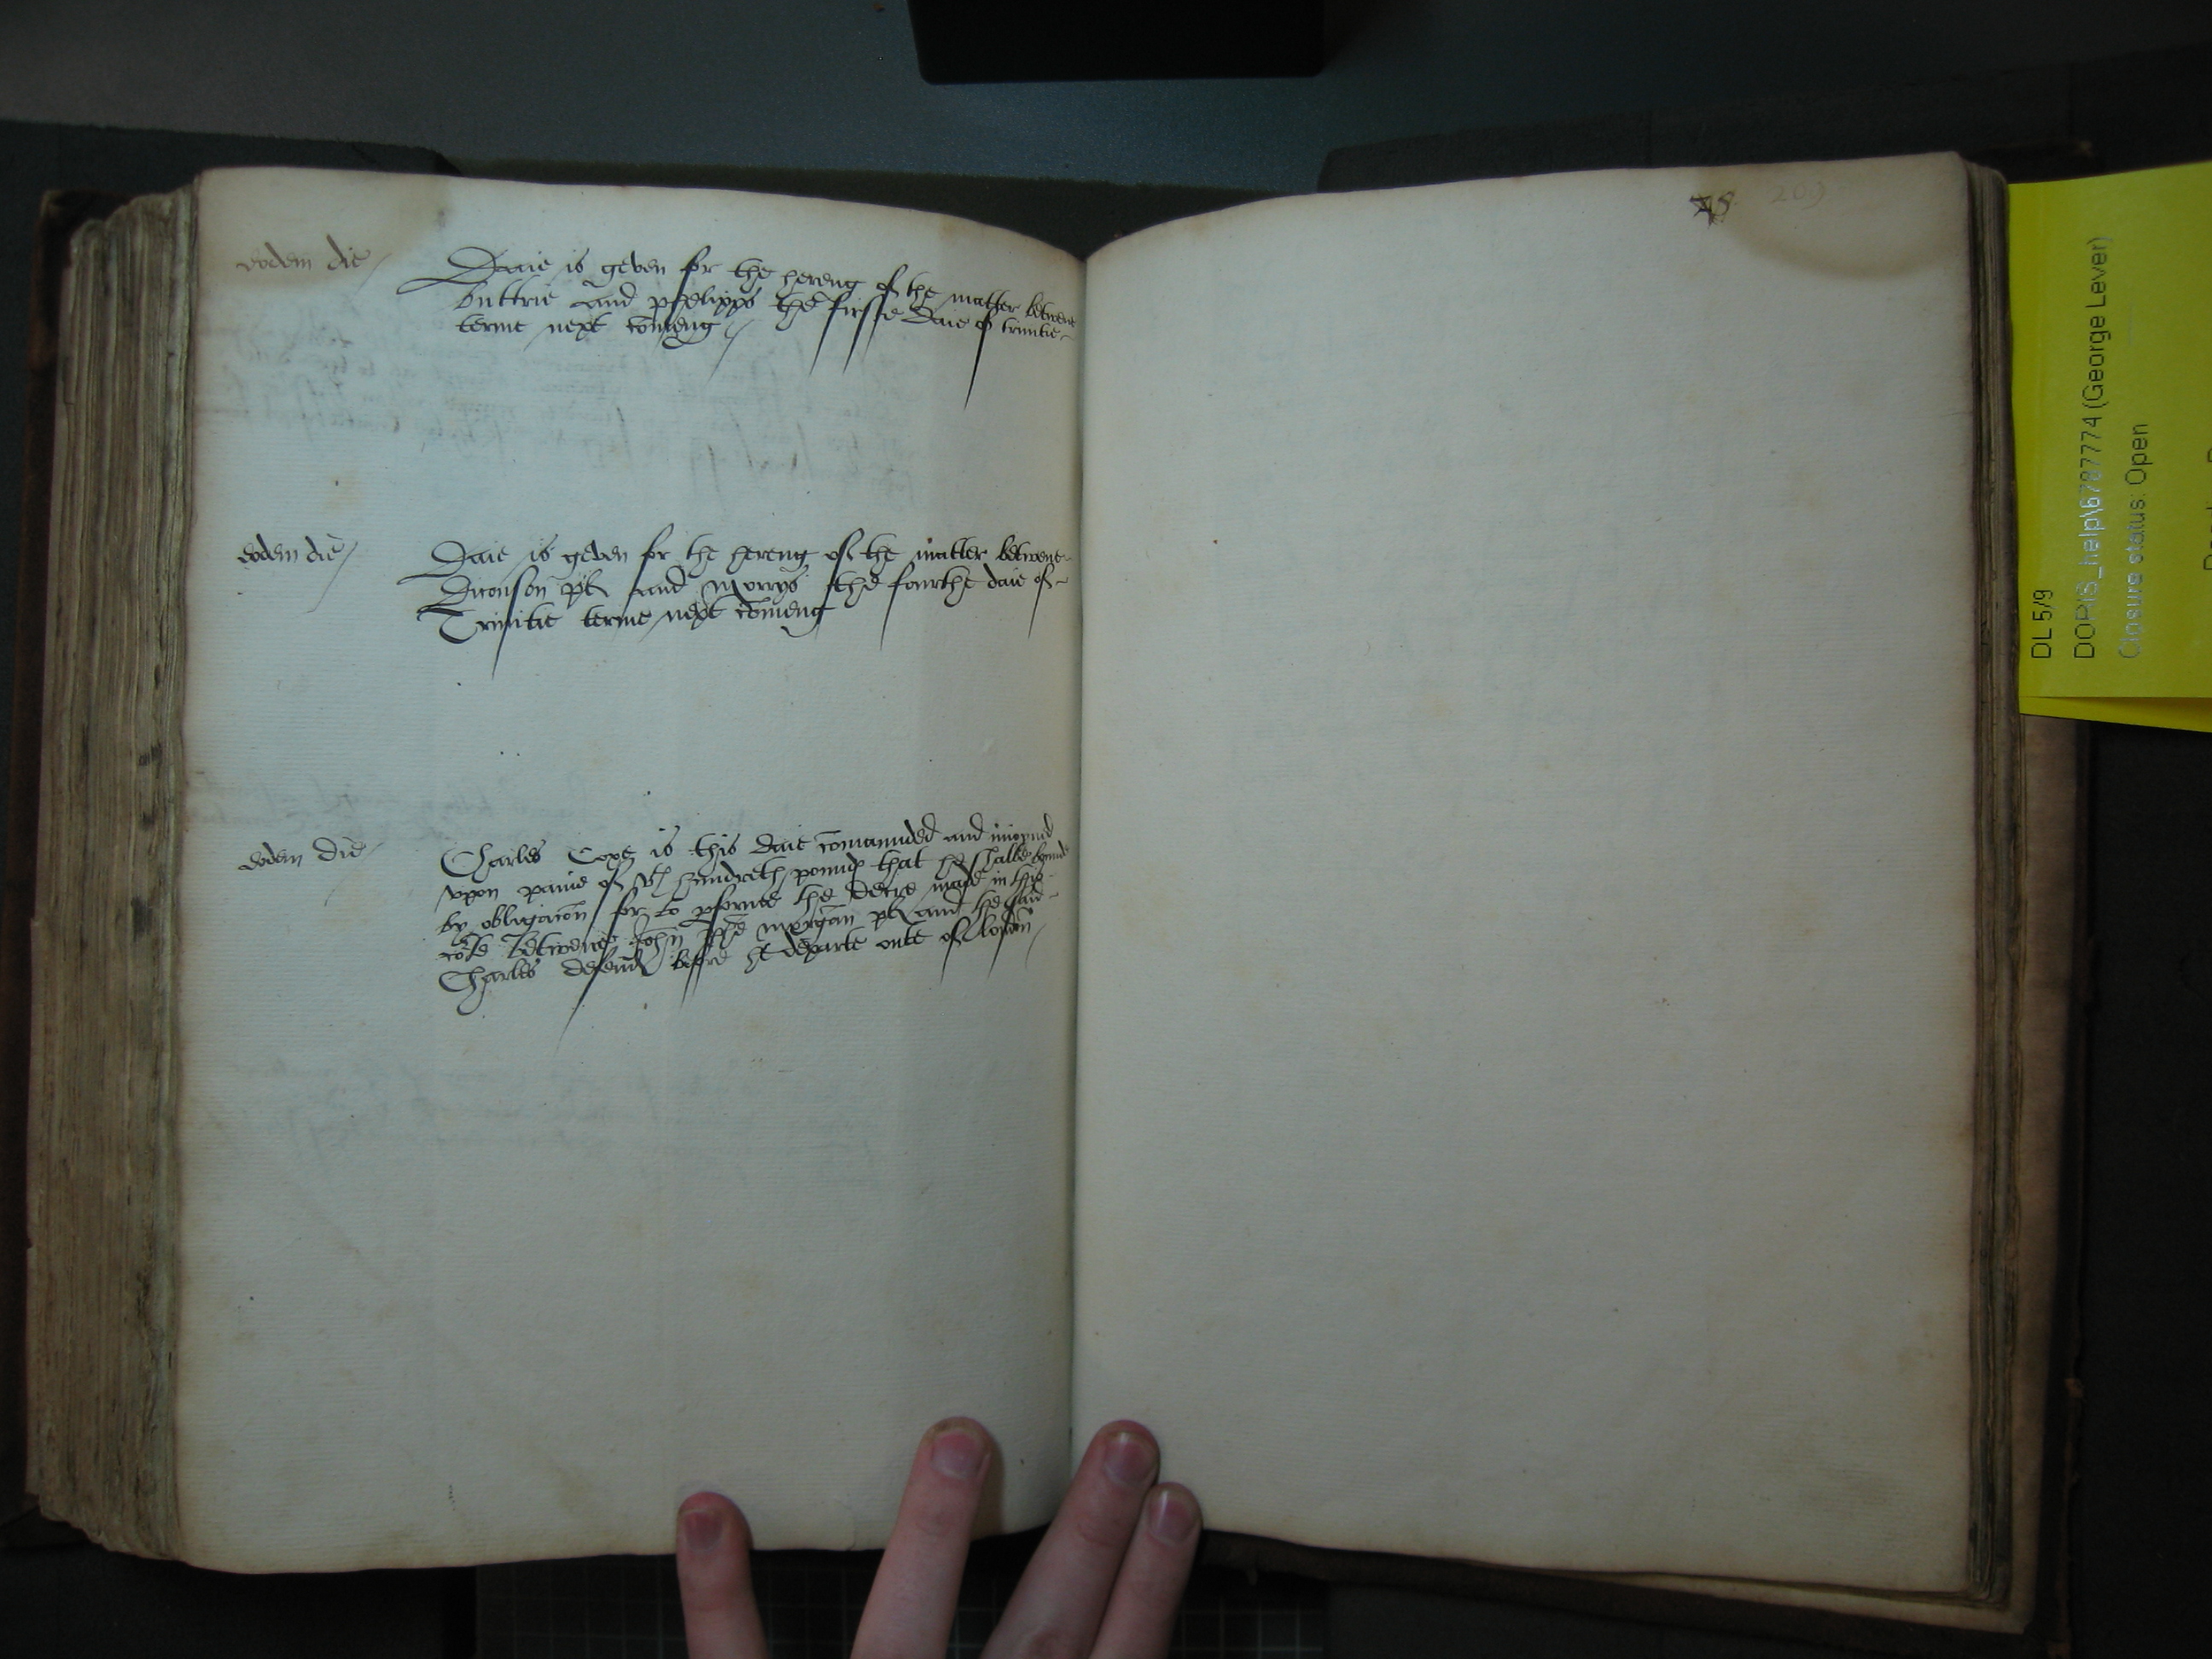 eodem die
Daie is geven for the hereng of the matter betwene
buttrie and phelipps the firste daie of trinitie
terme next comeng
eodem die
Daie is geven for the hereng of the matter betwene
Diconson pl and Morrys the fourthe daie of
Trinitie terme next comeng
eodem die
Charles Coxe is this daie comaunded and inioyned
upon paine of hundreth pounds that he shalbe bounde
by obligacon for to pforme the decre made in this
betwene John morgan pl and the said
Charles defend before he departe oute of
209
DL 5/9
DORIS_help\6787774 (George Lever)
Closure status: Open